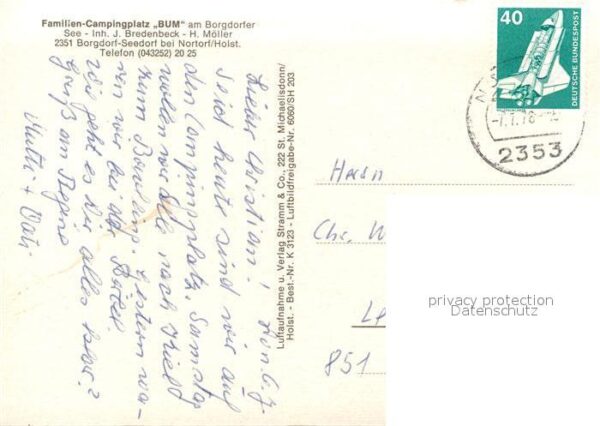 Familien-Campingplatz „BUM" am Borgdorfer
See - Inh. J. Bredenbeck - H. Möller
2351 Borgdorf-Seedorf bei Nortorf/Holst.
Telefon (043252) 20 25
Lieber Christian!
Seit heute sind wir auf
den Campingplatz. Samstag
wollen wir alle nach Kiel
zum Bowling. Gestern wa-
ren wir bei der
Wie geht es Dir alles klar?
Gruß an Regine
Mutti + Vati
Luftaufnahme u. Verlag Stramm & Co., 222 St. Michaelisdonn/
Holst. - Best.-Nr. K 3123 - Luftbildfreigabe-Nr. 6060/SH 203
40
DEUTSCHE BUNDESPOST
2353
Herrn
Chr.
851
privacy protection
Datenschutz